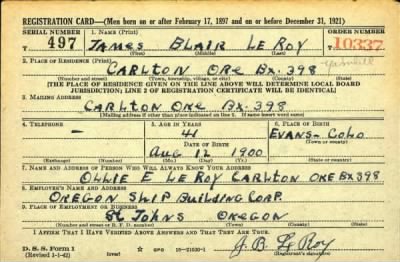 REGISTRATION CARD—(Men born on or after February 17, 1897 and on or before December 31, 1921)
SERIAL NUMBER 1. NAME (Print) ORDER NUMBER
497 JAMES BLAIR LE ROY 10337
(First) (Middle) (Last)
2. PLACE OF RESIDENCE (Print) Yamhill
CARLTON ORE BX. 398
(Number and street) (Town, township, village, or city) (County) (State)
[THE PLACE OF RESIDENCE GIVEN ON THE LINE ABOVE WILL DETERMINE LOCAL BOARD
JURISDICTION; LINE 2 OF REGISTRATION CERTIFICATE WILL BE IDENTICAL]
3. MAILING ADDRESS
CARLTON ORE BX. 398
[Mailing address if other than place indicated on line 2. If same insert word same]
4. TELEPHONE 5. AGE IN YEARS 6. PLACE OF BIRTH
- 41 EVANS-
DATE OF BIRTH
AUG 12 1900 COLO
7. NAME AND ADDRESS OF PERSON WHO WILL ALWAYS KNOW YOUR ADDRESS
OLLIE E LE ROY CARLTON ORE BX 398
8. EMPLOYER'S NAME AND ADDRESS
OREGON SHIP BUILDING CORP.
9. PLACE OF EMPLOYMENT OR BUSINESS
ST JOHNS OREGON
(Number and street or R. F. D. number) (Town) (County) (State)
I AFFIRM THAT I HAVE VERIFIED ABOVE ANSWERS AND THAT THEY ARE TRUE.
D. S. S. Form 1 GPO 16—21630-1
(Revised 1-1-42) J. B. Le Roy